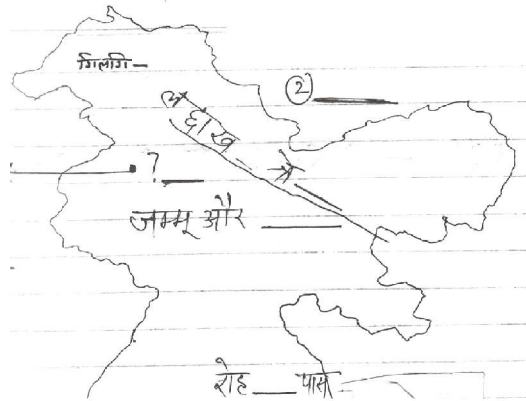 गिलगि –
② ____
? ____
जम्मू और ____
रोह ____ पास